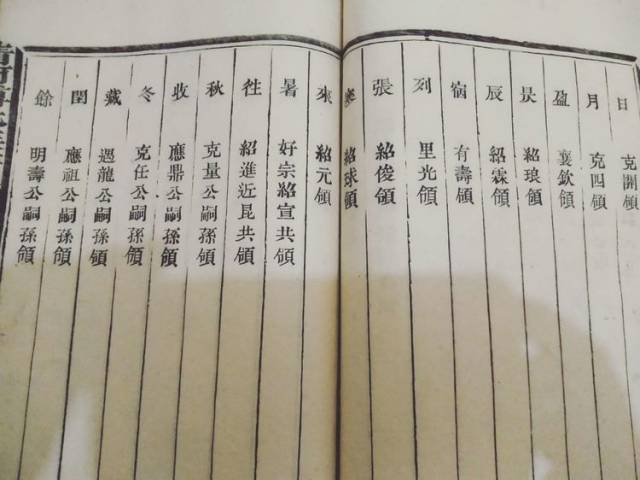 日 克開領
月 克四領
盈 襄欽領
昃 紹琅領
辰 紹霖領
宿 有壽領
列 里光領
張 紹俊領
寒 紹球領
來 紹元領
暑 好宗紹宣共領
徃 紹進近昆共領
秋 克量公嗣孫領
收 應鼎公嗣孫領
冬 克任公嗣孫領
藏 遇龍公嗣孫領
閏 應祖公嗣孫領
餘 明壽公嗣孫領